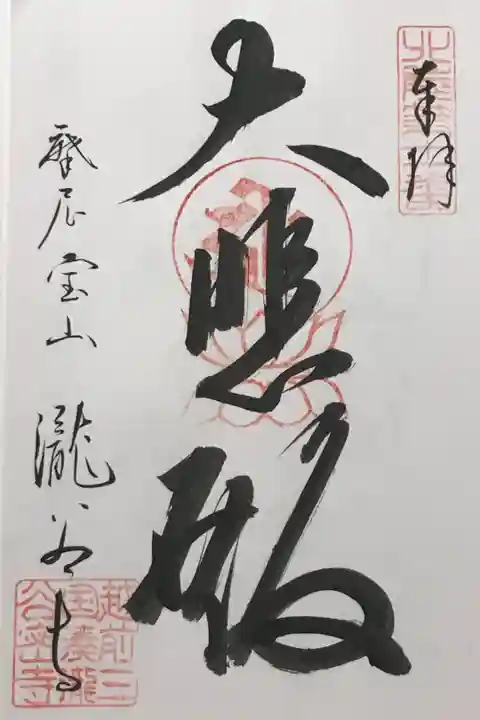 奉拝
大悲殿
摩尼宝山 瀧谷寺
越前三
国湊瀧
谷寺